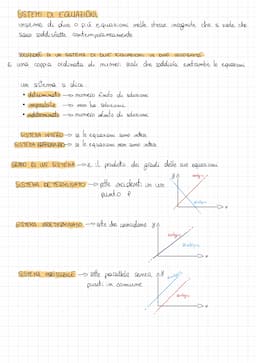 SISTEMI DI EQUAZIONI
insieme di due o più equazioni nelle stesse incognite che si vede che
siano soddisfatte contemporaneamente
SOLUZIONE DI UN SISTEMA DI DUE EQUAZIONI IN DUE INCOGNITE
È una coppia ordinata di numeri reali che soddisfa entrambe le equazioni
un sistema si dice
• determinato → numero finito di soluzioni
• impossibile → non ha soluzione
• indeterminato → numero infinito di soluzioni
SISTEMA INTERO → se le equazioni sono intere
SISTEMA FRAZIONARIO → se le equazioni non sono intere
GRADO DI UN SISTEMA → è il prodotto dei gradi delle sue equazioni
SISTEMA DETERMINATO → rette incidenti in un
punto P
SISTEMA INDETERMINATO → rette che coincidono
SISTEMA IMPOSSIBILE → rette parallele senza
punti in comune